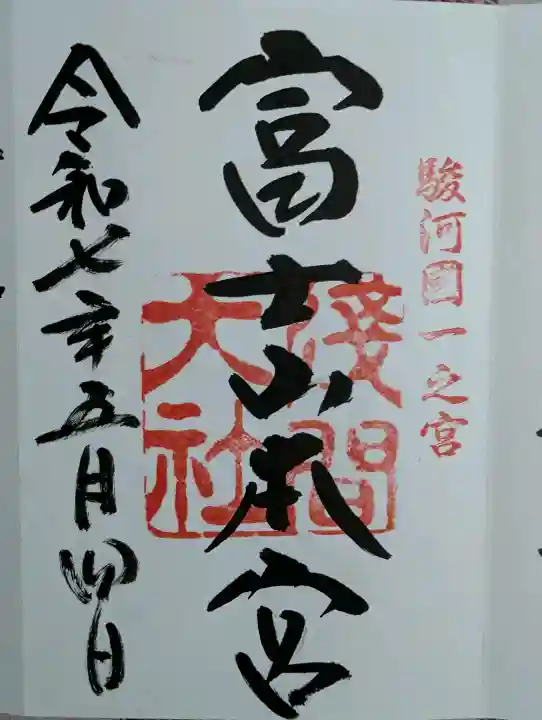 駿河國一之宮
富士山本宮
浅間大社
令和七年五月四日